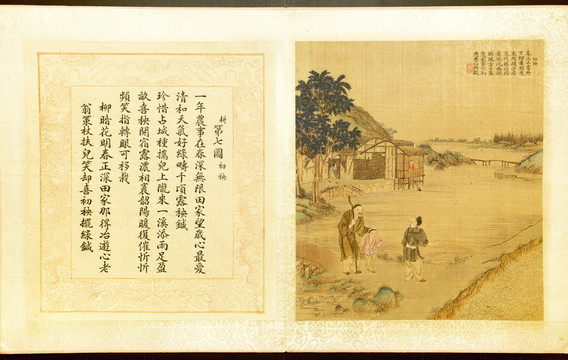 耕 第七圖 初秧
一年農事在春深無限田家望歲心最愛
清和天氣好綠疇千頃露秧鍼
珍惜占城種攜兒上隴來一溪添雨足盈
畝喜秧開宿露濃相裛韶陽暖復催忻忻
頻笑指轉眼可移栽
柳暗花明春正深田家那得冶遊心老
翁策杖扶兒笑却喜初秧擺綠鍼
初秧